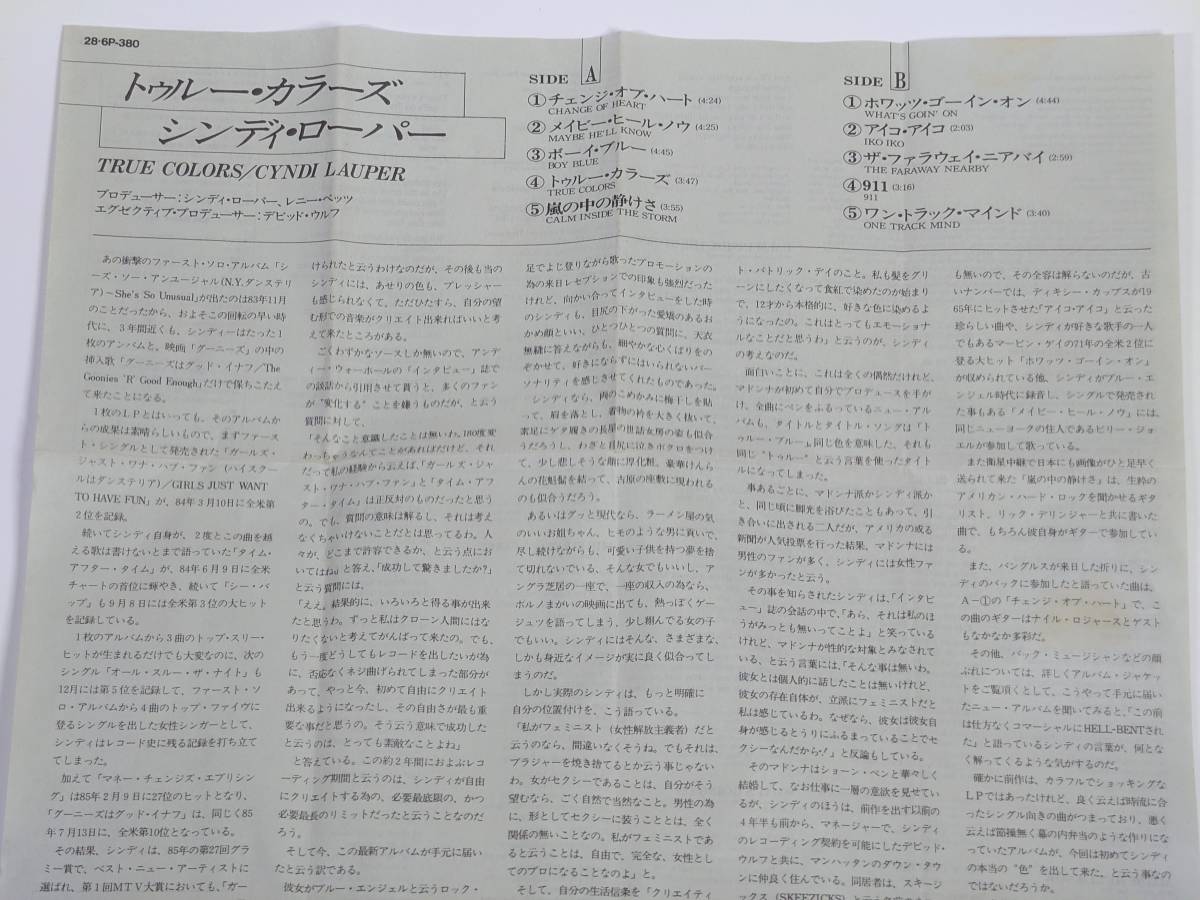 28・6P-380
トゥルー・カラーズ
シンディ・ローパー
TRUE COLORS/CYNDI LAUPER
プロデューサー：シンディ・ローパー、レニー・ペッツ
エグゼクティブ・プロデューサー：デビッド・ウルフ
SIDE A
①チェンジ・オブ・ハート(4:24)
CHANGE OF HEART
②メイビー・ヒール・ノウ(4:25)
MAYBE HE'LL KNOW
③ボーイ・ブルー(4:45)
BOY BLUE
④トゥルー・カラーズ(3:47)
TRUE COLORS
⑤嵐の中の静けさ(3:55)
CALM INSIDE THE STORM
SIDE B
①ホワッツ・ゴーイン・オン(4:44)
WHAT'S GOIN' ON
②アイコ・アイコ(2:03)
IKO IKO
③ザ・ファラウェイ・ニアバイ(2:59)
THE FARAWAY NEARBY
④911(3:16)
911
⑤ワン・トラック・マインド(3:40)
ONE TRACK MIND
あの衝撃のファースト・ソロ・アルバム「シ
ーズ・ソー・アンユージャル(N.Y.ダンステリ
ア)〜She's So Unusual」が出たのは83年11月
のことだったから、およそこの回転の早い時
代に、3年間近くも、シンディーはたった1
枚のアルバムと。映画「グーニーズ」の中の
挿入歌「グーニーズはグッド・イナフ/The
Goonies 'R' Good Enough」だけで保ちこたえ
て来たことになる。
1枚のLPとはいっても、そのアルバムか
らの成果は素晴らしいもので、まずファース
ト・シングルとして発売された「ガールズ・
ジャスト・ワナ・ハブ・ファン(ハイスクー
ルはダンステリア)/GIRLS JUST WANT
TO HAVE FUN」が、84年3月10日に全米第
2位を記録。
続いてシンディ自身が、2度とこの曲を越
える歌は書けないとまで語っていた「タイム・
アフター・タイム」が、84年6月9日に全米
チャートの首位に輝やき、続いて「シー・バ
ップ」も9月8日には全米第3位の大ヒット
を記録している。
1枚のアルバムから3曲のトップ・スリー・
ヒットが生まれるだけでも大変なのに、次の
シングル「オール・スルー・ザ・ナイト」も
12月には第5位を記録して、ファースト・ソ
ロ・アルバムから4曲のトップ・ファイヴに
登るシングルを出した女性シンガーとして、
シンディはレコード史に残る記録を打ち立て
てしまった。
加えて「マネー・チェンジズ・エブリシン
グ」は85年2月9日に27位のヒットとなり、
「グーニーズはグッド・イナフ」は、同じく85
年7月13日に、全米第10位となっている。
その結果、シンディは、85年の第27回グラ
ミー賞で、ベスト・ニュー・アーティストに
選ばれ、第1回MTV大賞においても、「ガー
けられたと云うわけなのだが、その後も当の
シンディには、あせりの色も、プレッシャー
も感じられなくて、ただひたすら、自分の望
む形での音楽がクリエイト出来ればいいと考
えて来たところがある。
ごくわずかなソースしか無いので、アンデ
ィー・ウォーホールの「インタビュー」誌で
の談話から引用させて貰うと、多くのファン
が“変化する”ことを嫌うものだが、と云う
質問に対して、
「そんなこと意識したことは無いわ。180度変
わっちゃうなんてことがあればだけど、それ
だって私の経験から云えば、「ガールズ・ジャ
スト・ワナ・ハブ・ファン」と「タイム・アフ
ター・タイム」は正反対のものだったと思う
の。でも、質問の意味は解るし、それは考え
なくちゃいけないことだとは思ってるわ。人
々が、どこまで許容できるか、と云う点にお
いてはね」と答え、「成功して驚きましたか？」
と云う質問には、
「ええ。結果的に、いろいろと得る事が出来
たと思うわ。ずっと私はクローン人間にはな
りたくないと考えてがんばって来たの。でも、
もう一度どうしてもレコードを出したいが為
に、否応なくネジ曲げられてしまった部分が
あって、やっと今、初めて自由にクリエイト
出来るようになったし、その自由さが最も重
要な事だと思うの。そう云う意味で成功した
と云うのは、とっても素敵なことよね」
と答えている。この約2年間におよぶレコ
ーディング期間と云うのは、シンディが自由
にクリエイトする為の、必要最底限の、かつ
必要最長のリミットだったと云うことなのだ
ろう。
そして今、この最新アルバムが手元に届い
たと云う訳である。
彼女がブルー・エンジェルと云うロック・
足でよじ登りながら歌ったプロモーションの
為の来日レセプションでの印象も強烈だった
けれど、向かい合ってインタビューをした時
のシンディも、目尻の下がった愛嬌のあるお
かめ顔といい、ひとつひとつの質問に、天衣
無縫に答えながらも、細やかな心くばりをの
ぞかせて、好きにならずにはいられないパー
ソナリティを感じさせてくれたものであった。
シンディなら、両のこめかみに梅干しを貼
って、肩を落とし、着物の衿を大きく抜いて、
素足にゲタ履きの長屋の世話女房の姿も似合
うだろうし、わざと目尻に泣きボクロをつけ
て、少し悲しそうな顔に厚化粧。豪華けんら
んの花魁髷を結って、吉原の座敷に現われる
のも似合うだろう。
あるいはグッと現代なら、ラーメン屋の気
のいいお姐ちゃん、ヒモのような男に貢いで、
尽し続けながらも、可愛い子供を持つ夢を捨
て切れないでいる、そんな女でもいいし、ア
ングラ芝居の一座で、一座の収入の為なら、
ポルノまがいの映画に出ても、熱っぽくゲー
ジュツを語ってしまう、少し翔んでる女の子
でもいい。シンディにはそんな、さまざまな、
しかも身近なイメージが実に良く似合ってし
まうのだ。
しかし実際のシンディは、もっと明確に
自分の位置付けを、こう語っている。
「私がフェミニスト(女性解放主義者)だと
云うのなら、間違いなくそうね。でもそれは、
ブラジャーを焼き捨てるとか云う事じゃない
わ。女がセクシーであることは、自分がそう
望むなら、ごく自然で当然なこと。男性の為
に、形としてセクシーに装うこととは、全く
関係の無いことなの。私がフェミニストであ
ると云うことは、自由で、完全な、女性とし
てのプロになることなのよ」と。
そして、自分の生活信条を「クリエイティ
ト・パトリック・デイのこと。私も髪をグリ
ーンにしたくなって食紅で染めたのが始まり
で、12才から本格的に、好きな色に染めるよ
うになったの。これはとってもエモーショナ
ルなことだと思うわ」と云うのが、シンディ
の考えなのだ。
面白いことに、これは全くの偶然だけれど、
マドンナが初めて自分でプロデュースを手が
け、全曲にペンをふるっているニュー・アル
バムも、タイトルとタイトル・ソングは「ト
ゥルー・ブルー」。同じ色を意味した、それも
同じ“トゥルー”と云う言葉を使ったタイト
ルになってしまった。
事あるごとに、マドンナ派かシンディ派か
と、同じ頃に脚光を浴びたこともあって、引
き合いに出される二人だが、アメリカの或る
新聞が人気投票を行った結果、マドンナには
男性のファンが多く、シンディには女性ファ
ンが多かったと云う。
その事を知らされたシンディは、「インタビ
ュー」誌の会話の中で、「あら、それは私のほ
うがみっとも無いってことよ」と笑っている
けれど、マドンナが性的な対象とみなされて
いる、と云う言葉には、「そんな事は無いわ。
彼女とは個人的に話したことは無いけれど、
彼女の存在自体が、立派にフェミニストだと
私は感じているわ。なぜなら、彼女は彼女自
身が感じるとうりにふるまっていることでセ
クシーなんだから！」と反論もしている。
そのマドンナはショーン・ペンと華々しく
結婚して、なお仕事に一層の意欲を見せてい
るが、シンディのほうは、前作を出す以前の
4年半も前から、マネージャーで、シンディ
のレコーディング契約を可能にしたデビッド・
ウルフと共に、マンハッタンのダウン・タウ
ンに仲良く住んでいる。同居者は、スキージ
ックス(SKEEZICKS)と云う名前の
も無いので、その全容は解らないのだが、古
いナンバーでは、ディキシー・カップスが19
65年にヒットさせた「アイコ・アイコ」と云った
珍らしい曲や、シンディが好きな歌手の一人
でもあるマービン・ゲイの71年の全米2位に
登る大ヒット「ホワッツ・ゴーイン・オン」
が収められている他、シンディがブルー・エ
ンジェル時代に録音し、シングルで発売され
た事もある「メイビー・ヒール・ノウ」には、
同じニューヨークの住人であるビリー・ジョ
エルが参加して歌っている。
また衛星中継で日本にも画像がひと足早く
送られて来た「嵐の中の静けさ」は、生粋の
アメリカン・ハード・ロックを聞かせるギタ
リスト、リック・デリンジャーと共に書いた
曲で、もちろん彼自身がギターで参加してい
る。
また、バングルスが来日した折りに、シン
ディのバックに参加したと語っていた曲は、
A－①の「チェンジ・オブ・ハート」で、こ
の曲のギターはナイル・ロジャースとゲスト
もなかなか多彩だ。
その他、バック・ミュージシャンなどの顔
ぶれについては、詳しくアルバム・ジャケッ
トをご覧頂くとして、こうやって手元に届い
たニュー・アルバムを聞いてみると、「この前
は仕方なくコマーシャルにHELL-BENTされ
た」と語っているシンディの言葉が、何とな
く解ってくるような気がするのだ。
確かに前作は、カラフルでショッキングな
LPではあったけれど、良く云えば時流に合
ったシングル向きの曲がつまっており、悪く
云えば節操無く幕の内弁当のような作りにな
っていたアルバムが、今回は初めてシンディ
の本当の“色”を出して来た、と云う事なの
ではないだろうか。